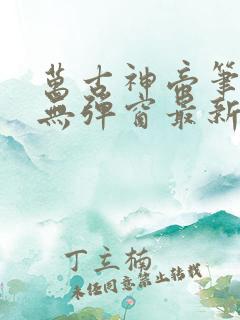 萬古神帝筆
無彈窗最新
丁立楠
未经同意禁止转载